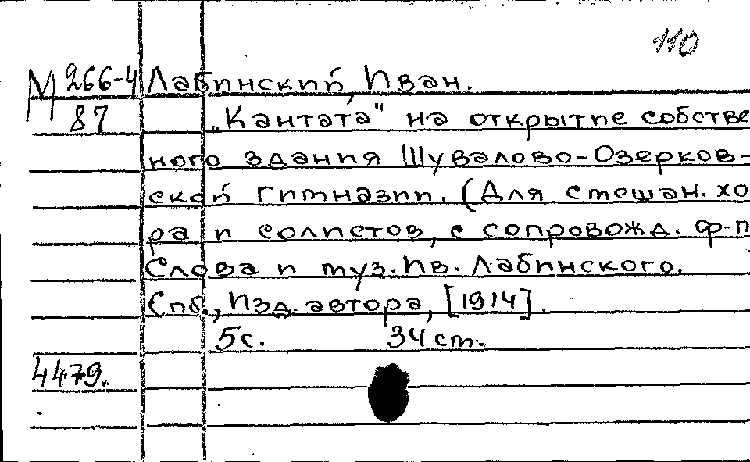 110
М 266-4 Лабинский, Иван.
87 „Кантата" на открытие собстве
ного здания Шувалово-Озерков-
ской гимназии. (Для смешан. хо
ра и солистов, с сопровожд. ф-п
Слова и муз. Ив. Лабинского.
Спб., Изд. автора, [1914].
5с. 34 ст.
4479.